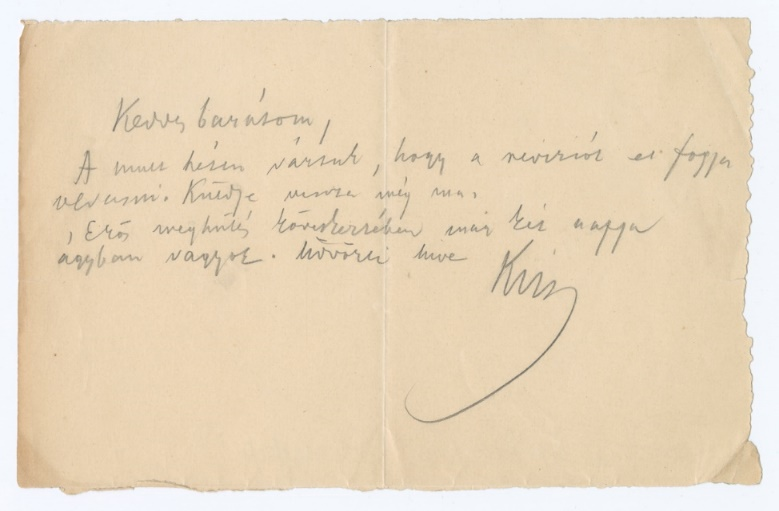 Kedves barátom,
A mult héten vártuk, hogy a revisiót el fogja
olvasni. Küldje vissza még ma.
Erős meghűlés következtében már két napja
ágyban vagyok. Üdvözli hive
Kiss